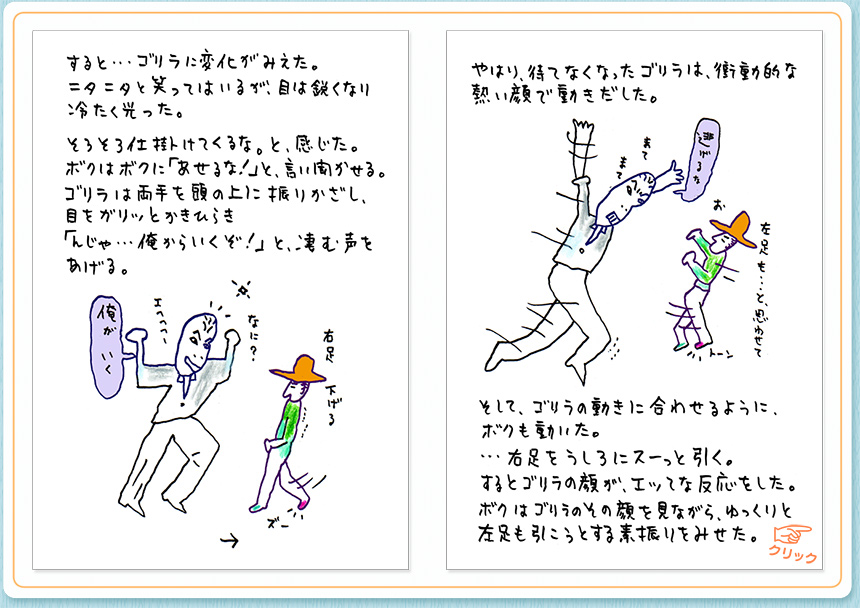 すると…ゴリラに変化がみえた。
ニタニタと笑ってはいるが、目は鋭くなり
冷たく光った。
そろそろ仕掛けてくるな。と、感じた。
ボクはボクに「あせるな!」と、言い聞かせる。
ゴリラは両手を頭の上に振りかざし、
目をガリッとかきひらき
「んじゃ…俺からいくぞ!」と、凄む声を
あげる。
俺が いく
エヘヘヘ〜
なに?
右足 下げる
ズー
→
やはり、待てなくなったゴリラは、衝動的な
熱い顔で動きだした。
逃げるな
まて
まて
お
左足も…と、思わせて
トーン
そして、ゴリラの動きに合わせるように、
ボクも動いた。
…右足をうしろにスーっと引く。
するとゴリラの顔が、エッてな反応をした。
ボクはゴリラのその顔を見ながら、ゆっくりと
左足も引こうとする素振りをみせた。
クリック